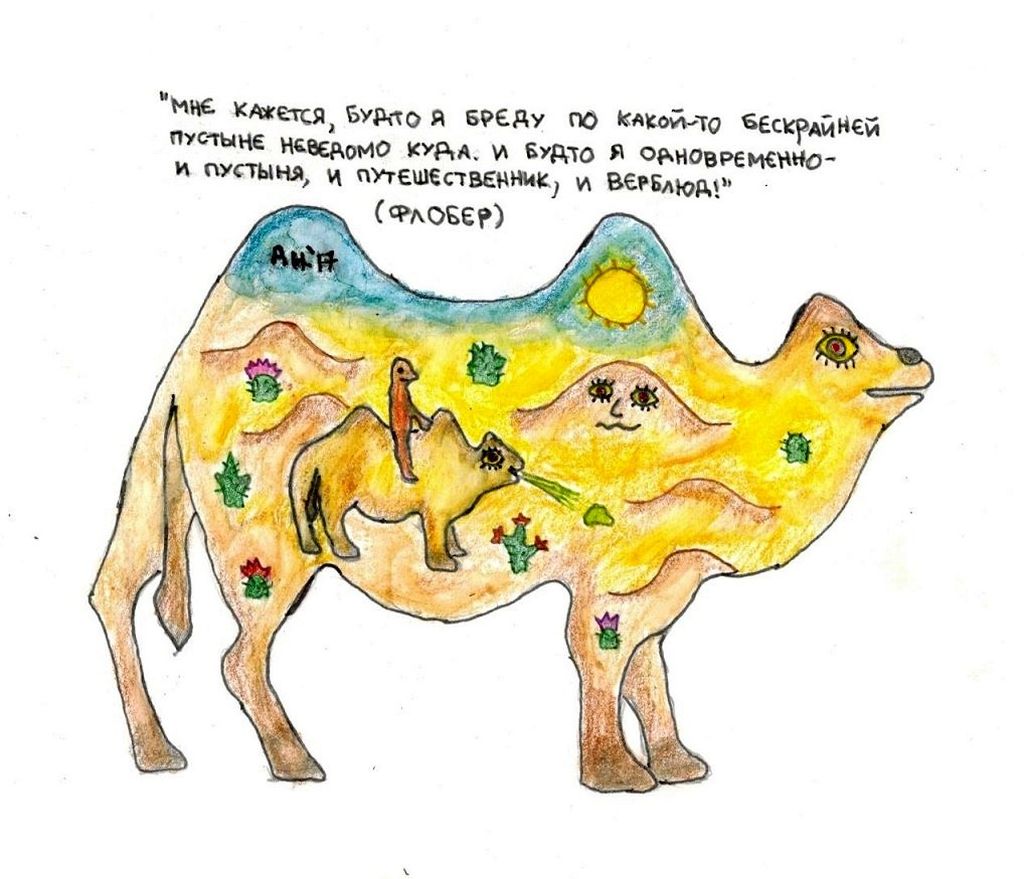 "МНЕ КАЖЕТСЯ, БУДТО Я БРЕДУ ПО КАКОЙ-ТО БЕСКРАЙНЕЙ
ПУСТЫНЕ НЕВЕДОМО КУДА. И БУДТО Я ОДНОВРЕМЕННО-
И ПУСТЫНЯ, И ПУТЕШЕСТВЕННИК, И ВЕРБЛЮД!"
(ФЛОБЕР)